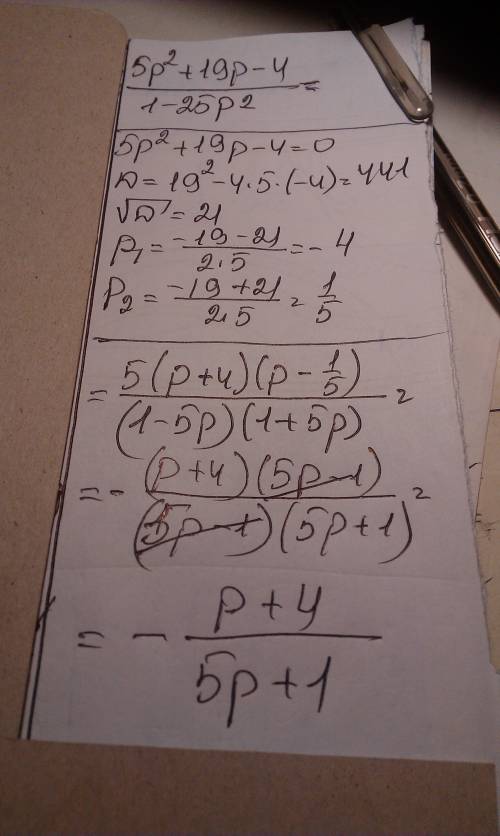 (5p²+19p-4)/(1-25p²) =
5p²+19p-4=0
D=19²-4·5·(-4)=441
√D=21
p₁=(-19-21)/(2·5)=-4
p₂=(-19+21)/(2·5)=1/5
=(5(p+4)(p-1/5))/((1-5p)(1+5p))=
=-((p+4)(5p-1))/((5p-1)(5p+1))=
=-(p+4)/(5p+1)